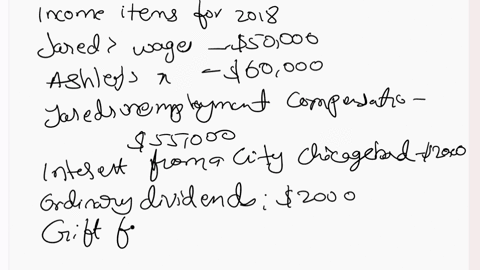 Income items for 2018
Jared's wages - $50,000
Ashley's " - $60,000
Jared's unemployment compensatio -
$55,000
Interest from a City Chicago bond - $2000
Ordinary dividends: $2000
Gift f